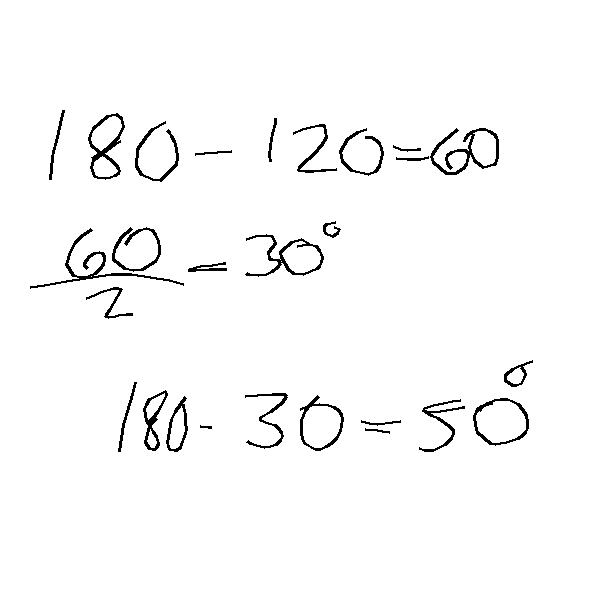 180 - 120 = 60
60/2 = 30°
180 - 30 = 50°